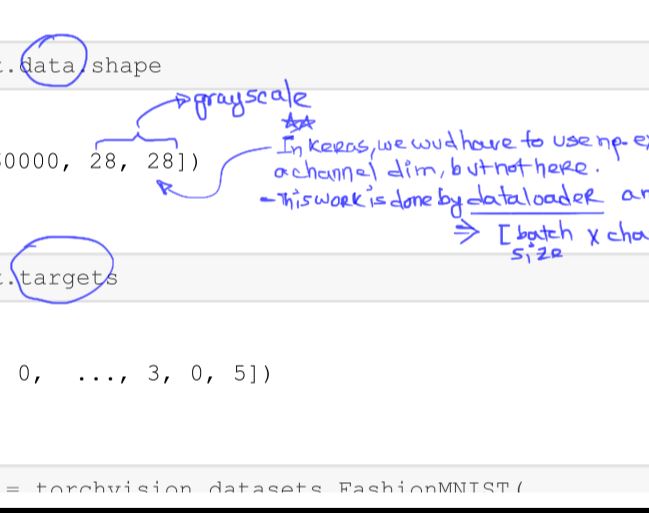 .data.shape
grayscale
0000, 28, 28])
In Keras, we wud have to use np.
a channel dim, but not here.
- This work is done by dataloader
⇒ [batch x cha
size
.targets
0, ..., 3, 0, 5])
= torchvision datasets FashionMNIST(